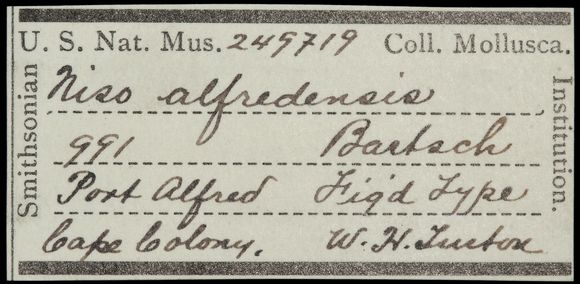 U. S. Nat. Mus. 249719 Coll. Mollusca.
Smithsonian
Institution.
Niso alfredensis
991 Bartsch
Port Alfred Fig'd Type
Cape Colony. W. H. Turton